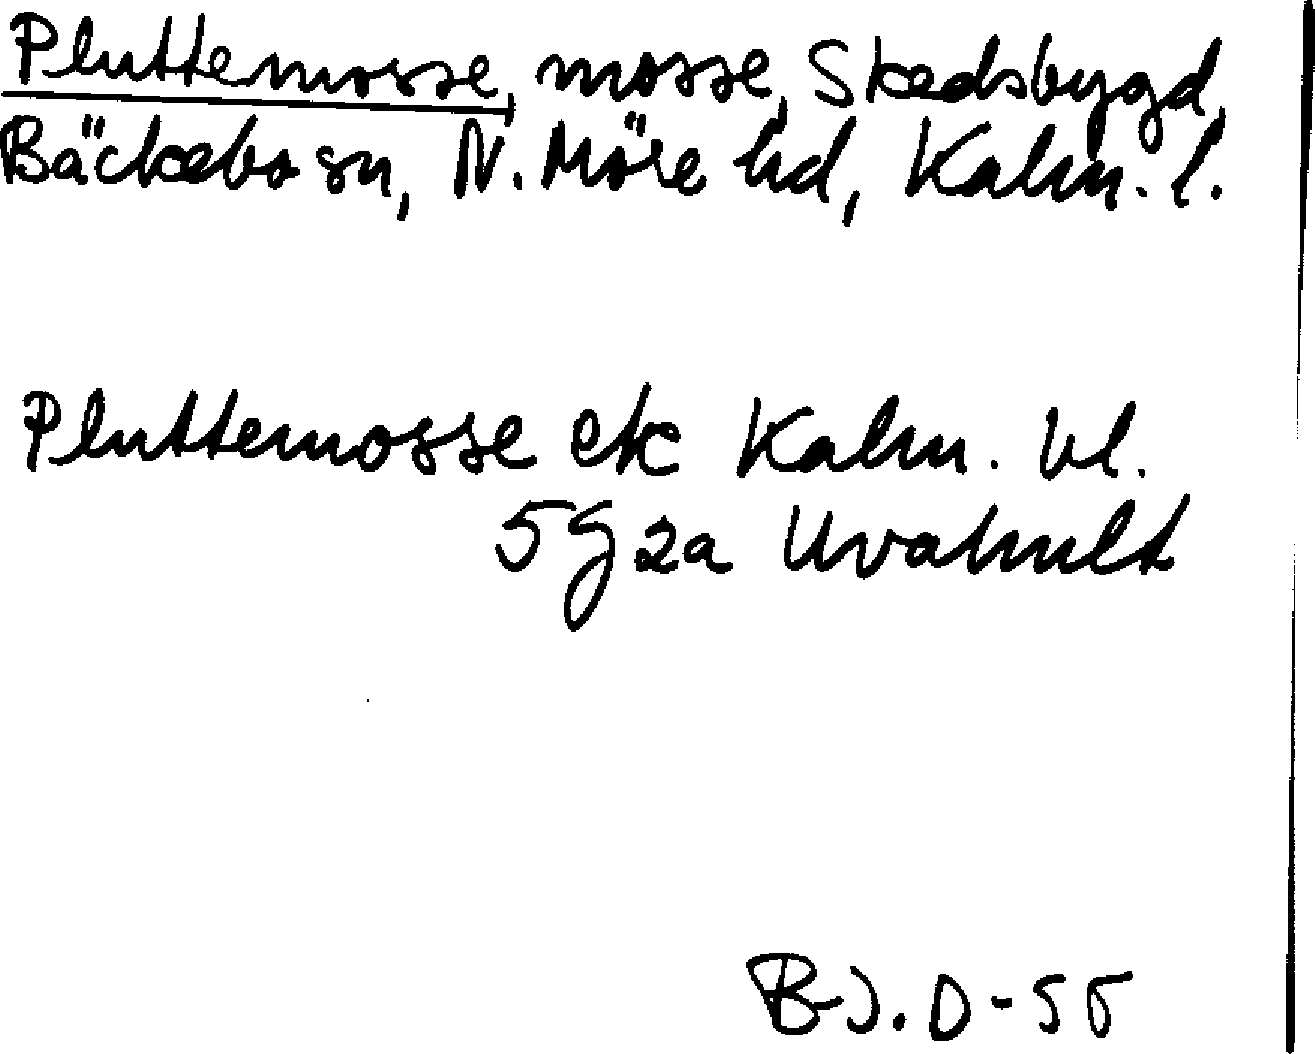 Pluttemosse, mosse, Skedsbygd,
Bäckebo sn, N. Möre hd, Kalm. l.
Pluttemosse ek Kalm. bl.
5g2a Uvahult
B-J. D-55